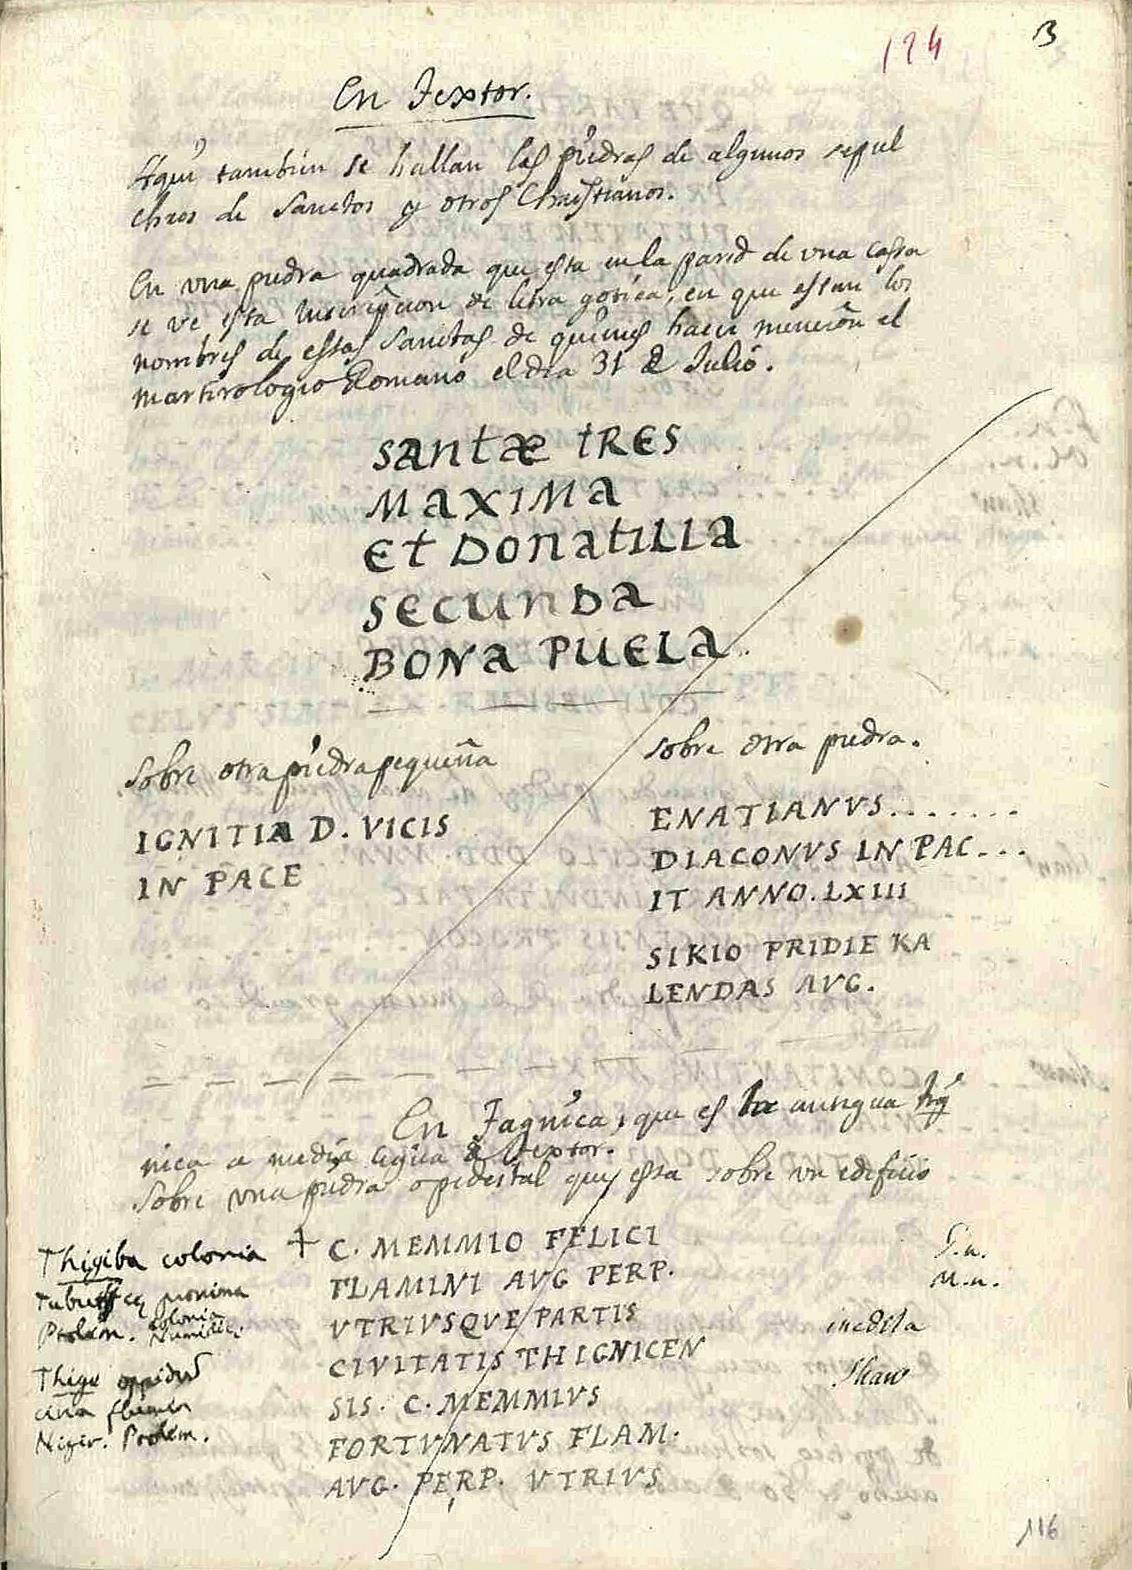 124
B
En Textor.
Aqui tambien se hallan las piedras de algunos sepul
chros de Sanctos y otros Christianos.
En una piedra quadrada que esta en la pared de una cassa
se ve esta Inscripcion de letra gotica, en que estan los
nombres de estas Sanctas de quienes hacen mencion el
Martirologio Romano el dia 31 de Julio.
SANTÆ TRES
MAXIMA
ET DONATILLA
SECUNDA
BONA PUELA
Sobre otra piedra pequeña
IGNITIA D. VICIS
IN PACE
Sobre otra piedra.
ENATIANVS........
DIACONVS IN PAC...
IT ANNO. LXIII
SIKIO PRIDIE KA
LENDAS AVG.
En Tagnica, que es la antigua
nica a media legua de Textor.
Sobre una piedra o pedestal que esta sobre un edificio
+ C. MEMMIO FELICI
FLAMINI AVG PERP.
VTRIVSQVE PARTIS
CIVITATIS THIGNICEN
SIS. C. MEMMIVS
FORTVNATVS FLAM.
AVG. PERP. VTRIVS
Thigiba colonia
colonia
Ptolem. Numidic.
Thige oppidum
circa flumen
Niger. Ptolem.
G.n.
M.n.
inedita
Shaw
116